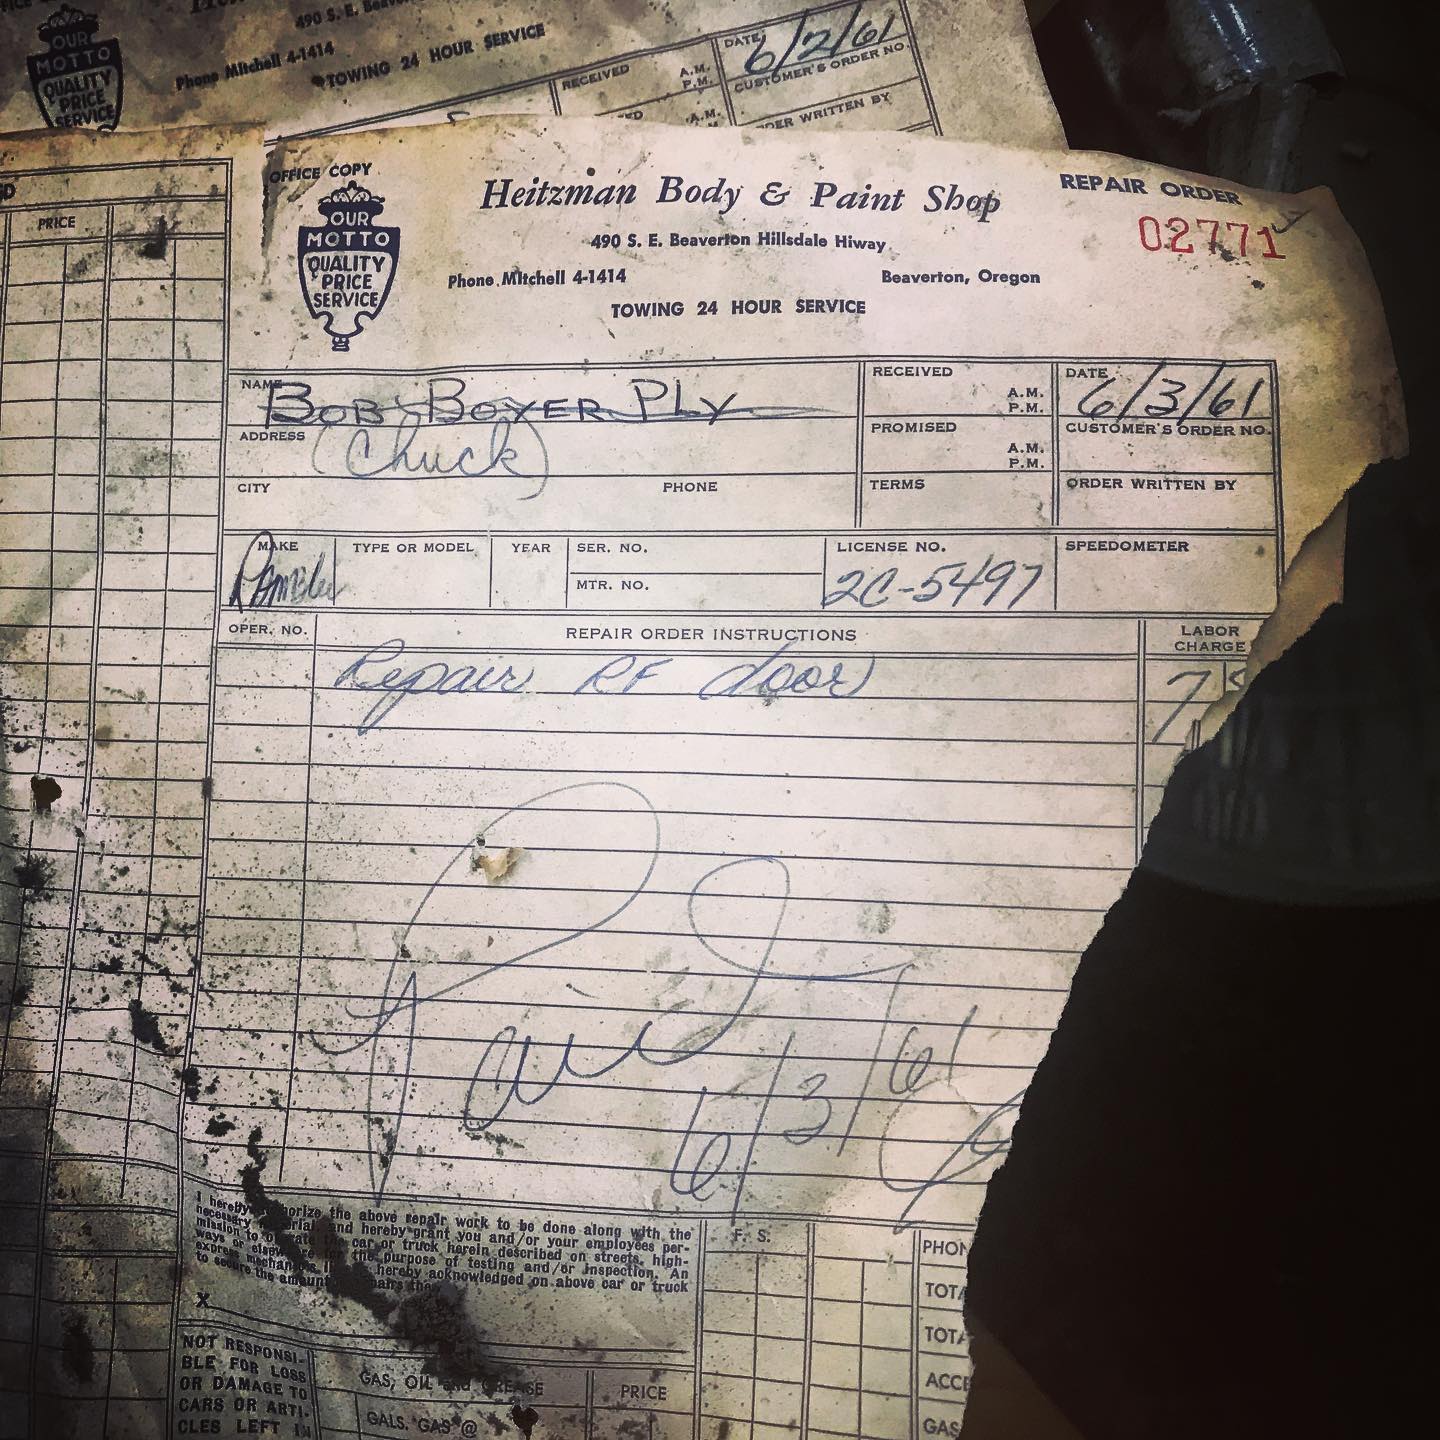 OFFICE
490 S. E. Beaverton
OUR
MOTTO
QUALITY
PRICE
SERVICE
Phone MItchell 4-1414
TOWING 24 HOUR SERVICE
RECEIVED
A.M.
P.M.
DATE
6/2/61
CUSTOMER'S ORDER NO.
A.M.
ORDER WRITTEN BY
PRICE
OFFICE COPY
OUR
MOTTO
QUALITY
PRICE
SERVICE
Heitzman Body & Paint Shop
490 S. E. Beaverton Hillsdale Hiway
Phone MItchell 4-1414 Beaverton, Oregon
TOWING 24 HOUR SERVICE
REPAIR ORDER
02771
NAME BOB BOYER PLY
RECEIVED A.M. P.M.
DATE 6/3/61
ADDRESS (Chuck)
PROMISED A.M. P.M.
CUSTOMER'S ORDER NO.
CITY PHONE
TERMS
ORDER WRITTEN BY
MAKE TYPE OR MODEL YEAR SER. NO. LICENSE NO. SPEEDOMETER
Rambler MTR. NO. 2C-5497
OPER. NO. REPAIR ORDER INSTRUCTIONS LABOR CHARGE
Repair RF door 7
Paid
6/3/61
I hereby authorize the above repair work to be done along with the
necessary material, and hereby grant you and/or your employees per-
mission to operate the car or truck herein described on streets, high-
ways or elsewhere for the purpose of testing and/or inspection. An
express mechanic's lien is hereby acknowledged on above car or truck
to secure the amount of repairs
X
F. S.
PHON
TOTA
TOTA
ACCE
GAS
NOT RESPONSI-
BLE FOR LOSS
OR DAMAGE TO
CARS OR ARTI-
CLES LEFT IN
GAS, OIL and GREASE PRICE
GALS. GAS @